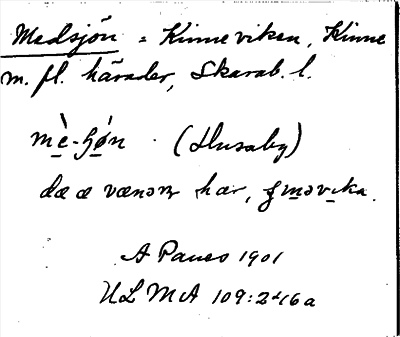 Medsjön = Kinneviken, Kinne
m. fl. härader, Skarab. l.
mè-ʃǿn (Husaby)
dæ æ vænəɳ hær,
A Pauss 1901
ULMA 109:246a